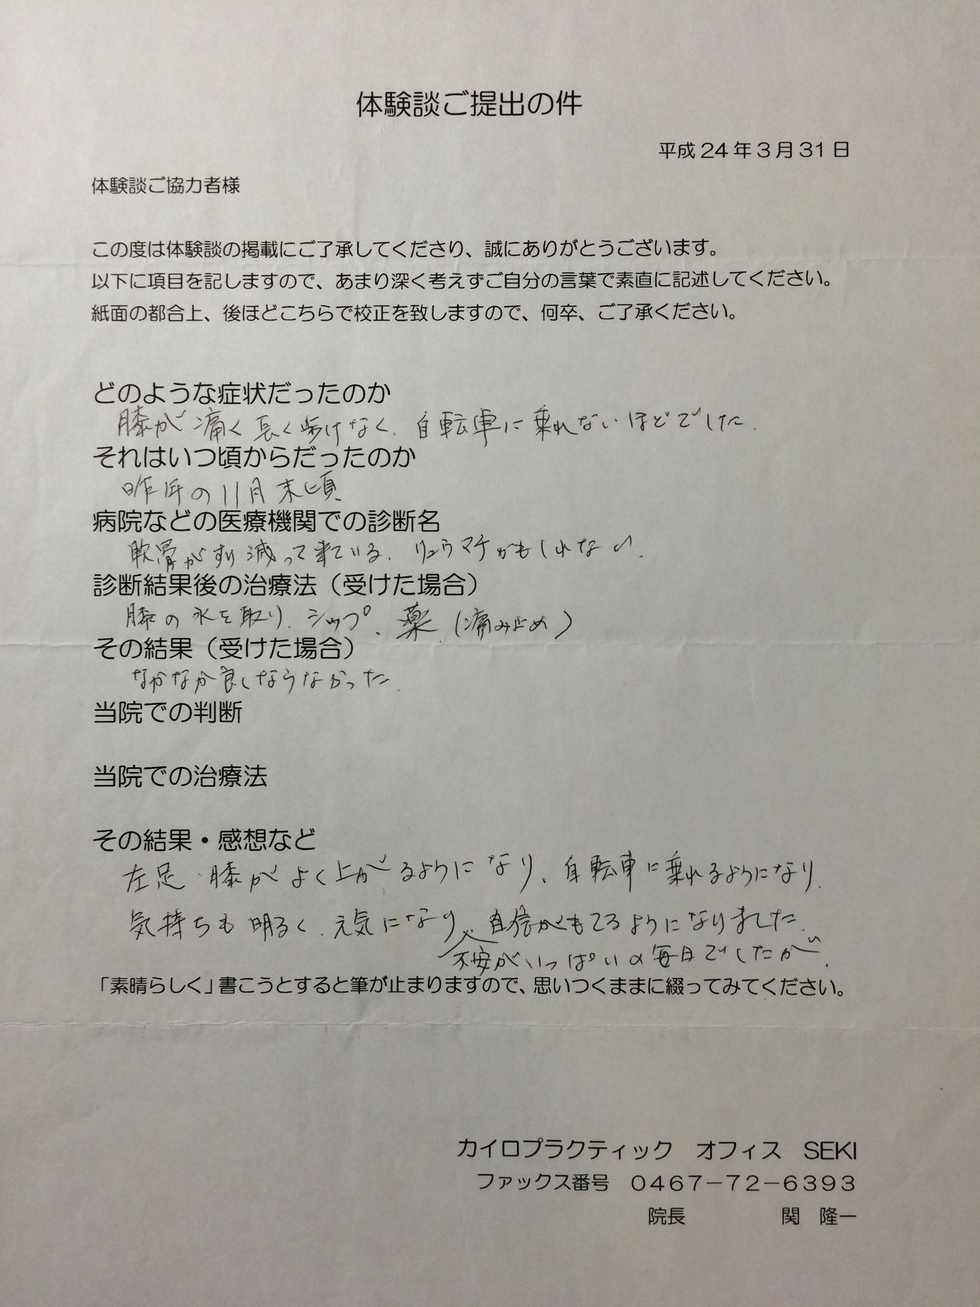 体験談ご提出の件
平成24年3月31日
体験談ご協力者様
この度は体験談の掲載にご了承してくださり、誠にありがとうございます。
以下に項目を記しますので、あまり深く考えずご自分の言葉で素直に記述してください。
紙面の都合上、後ほどこちらで校正を致しますので、何卒、ご了承ください。
どのような症状だったのか
膝が痛く長く歩けなく、自転車に乗れないほどでした。
それはいつ頃からだったのか
昨年の11月末頃
病院などの医療機関での診断名
軟骨がすり減って来ている。リュウマチかもしれない。
診断結果後の治療法（受けた場合）
膝の水を取り、シップ、薬（痛み止め）
その結果（受けた場合）
なかなか良くならなかった。
当院での判断
当院での治療法
その結果・感想など
左足、膝がよく上がるようになり、自転車に乗れるようになり、
気持ちも明るく、元気になり、自信がもてるようになりました。
不安がいっぱいの毎日でしたが、
「素晴らしく」書こうとすると筆が止まりますので、思いつくままに綴ってみてください。
カイロプラクティック　オフィス　SEKI
ファックス番号　0467－72－6393
院長　関　隆一